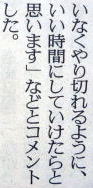 いなくやり切れるように、
いい時間にしていけたらと
思います」などとコメント
した。